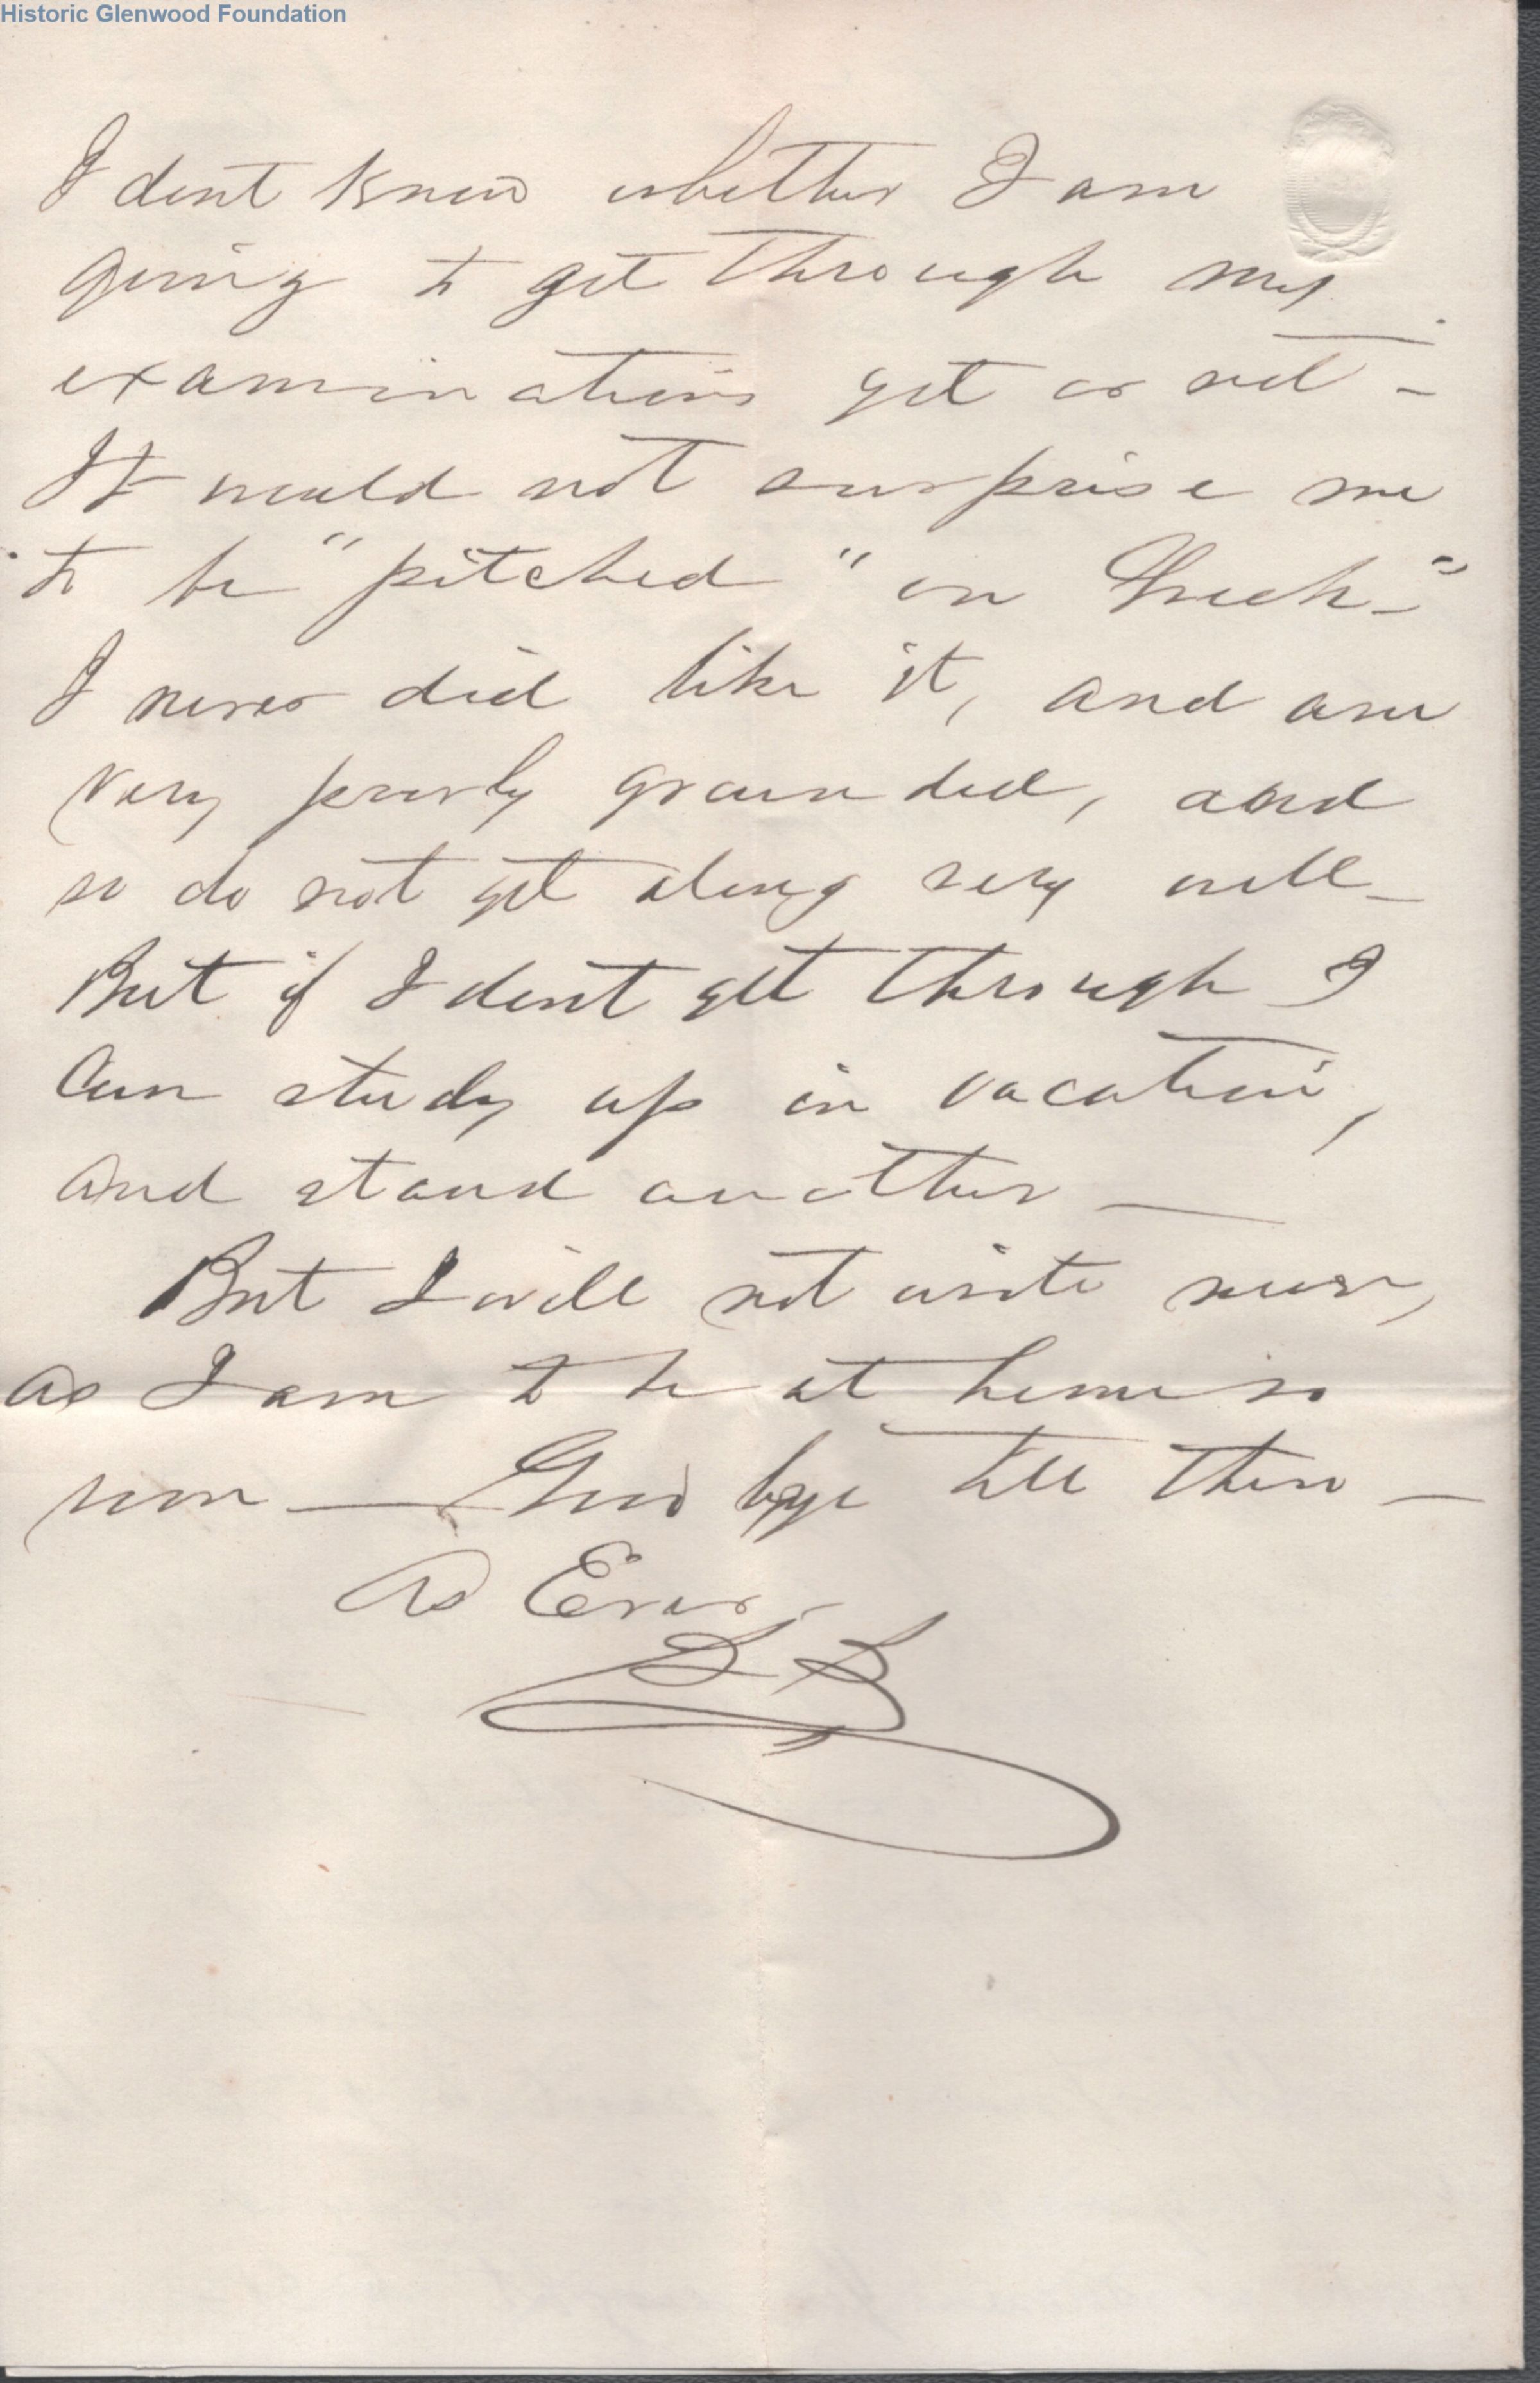 Historic Glenwood Foundation
I dont know whether I am
going to get through my
examinations yet or not -
It would not surprise me
to be "pitched" on Greek -"
I never did like it, and am
very poorly grounded, and
so do not get along very well -
But if I dont get through I
can study up in vacation,
and stand another -
But I will not write more,
as I am to be at home so
soon - Good bye till then -
As Ever -